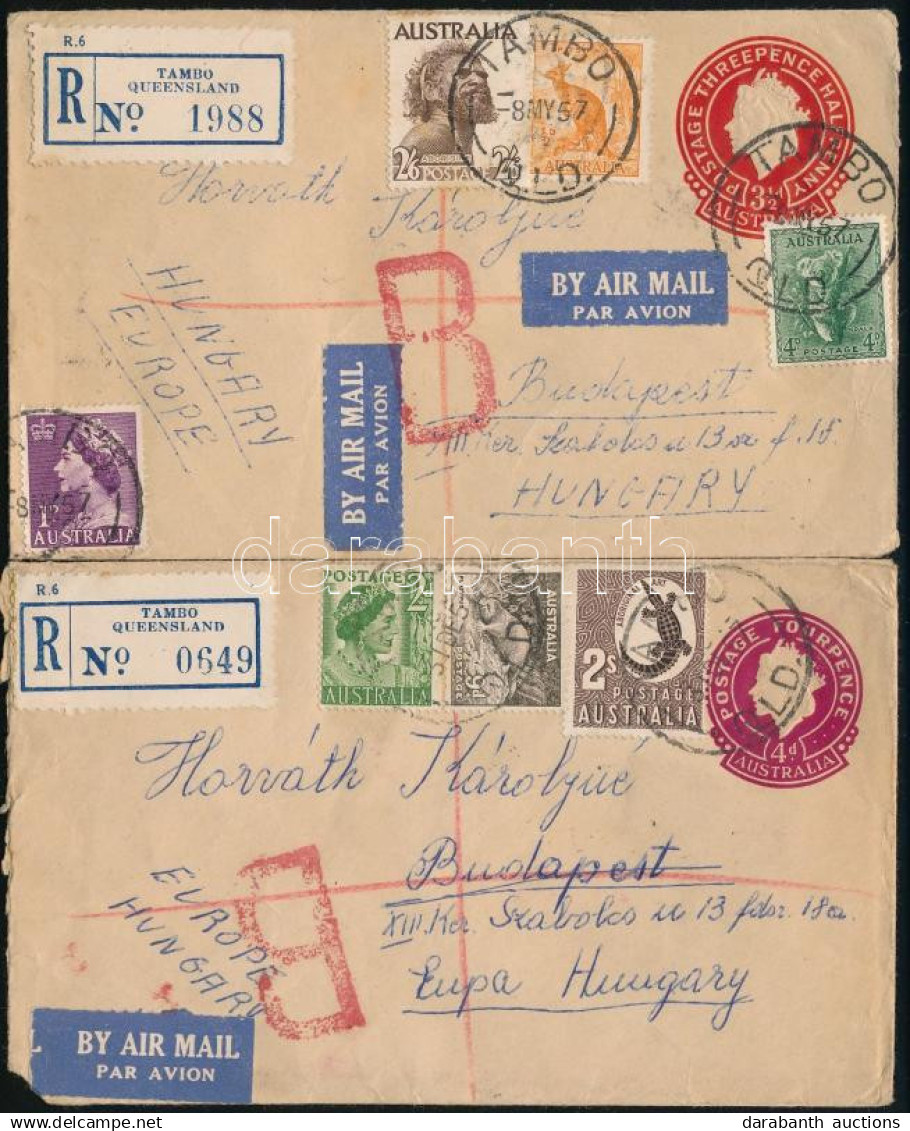 R.6
TAMBO
QUEENSLAND
R No 1988
AUSTRALIA
2/6 POSTAGE 2/6
ABORIGINE
AUSTRALIA
TAMBO
-8MY57
QLD.
POSTAGE THREEPENCE HALFPENNY
3½d
AUSTRALIA
TAMBO
QLD
AUSTRALIA
4D POSTAGE 4D
Horváth Károlyné
HUNGARY
EUROPE
BY AIR MAIL
PAR AVION
BY AIR MAIL
PAR AVION
B
Budapest
XIII. Ker. Szabolcs u 13
HUNGARY
-8MY57
1D
AUSTRALIA
darabanth
R.6
TAMBO
QUEENSLAND
R No 0649
POSTAGE 2
AUSTRALIA
AUSTRALIA
POSTAGE
9d
ABORIGINAL ART
2s
POSTAGE
AUSTRALIA
QLD.
POSTAGE FOURPENCE
4d
AUSTRALIA
Horváth Károlyné
Budapest
XIII. Ker. Szabolcs u 13 fdsz. 18a.
Eupa Hungary
EUROPE
HUNGARY
B
L BY AIR MAIL
PAR AVION
darabanth auctions